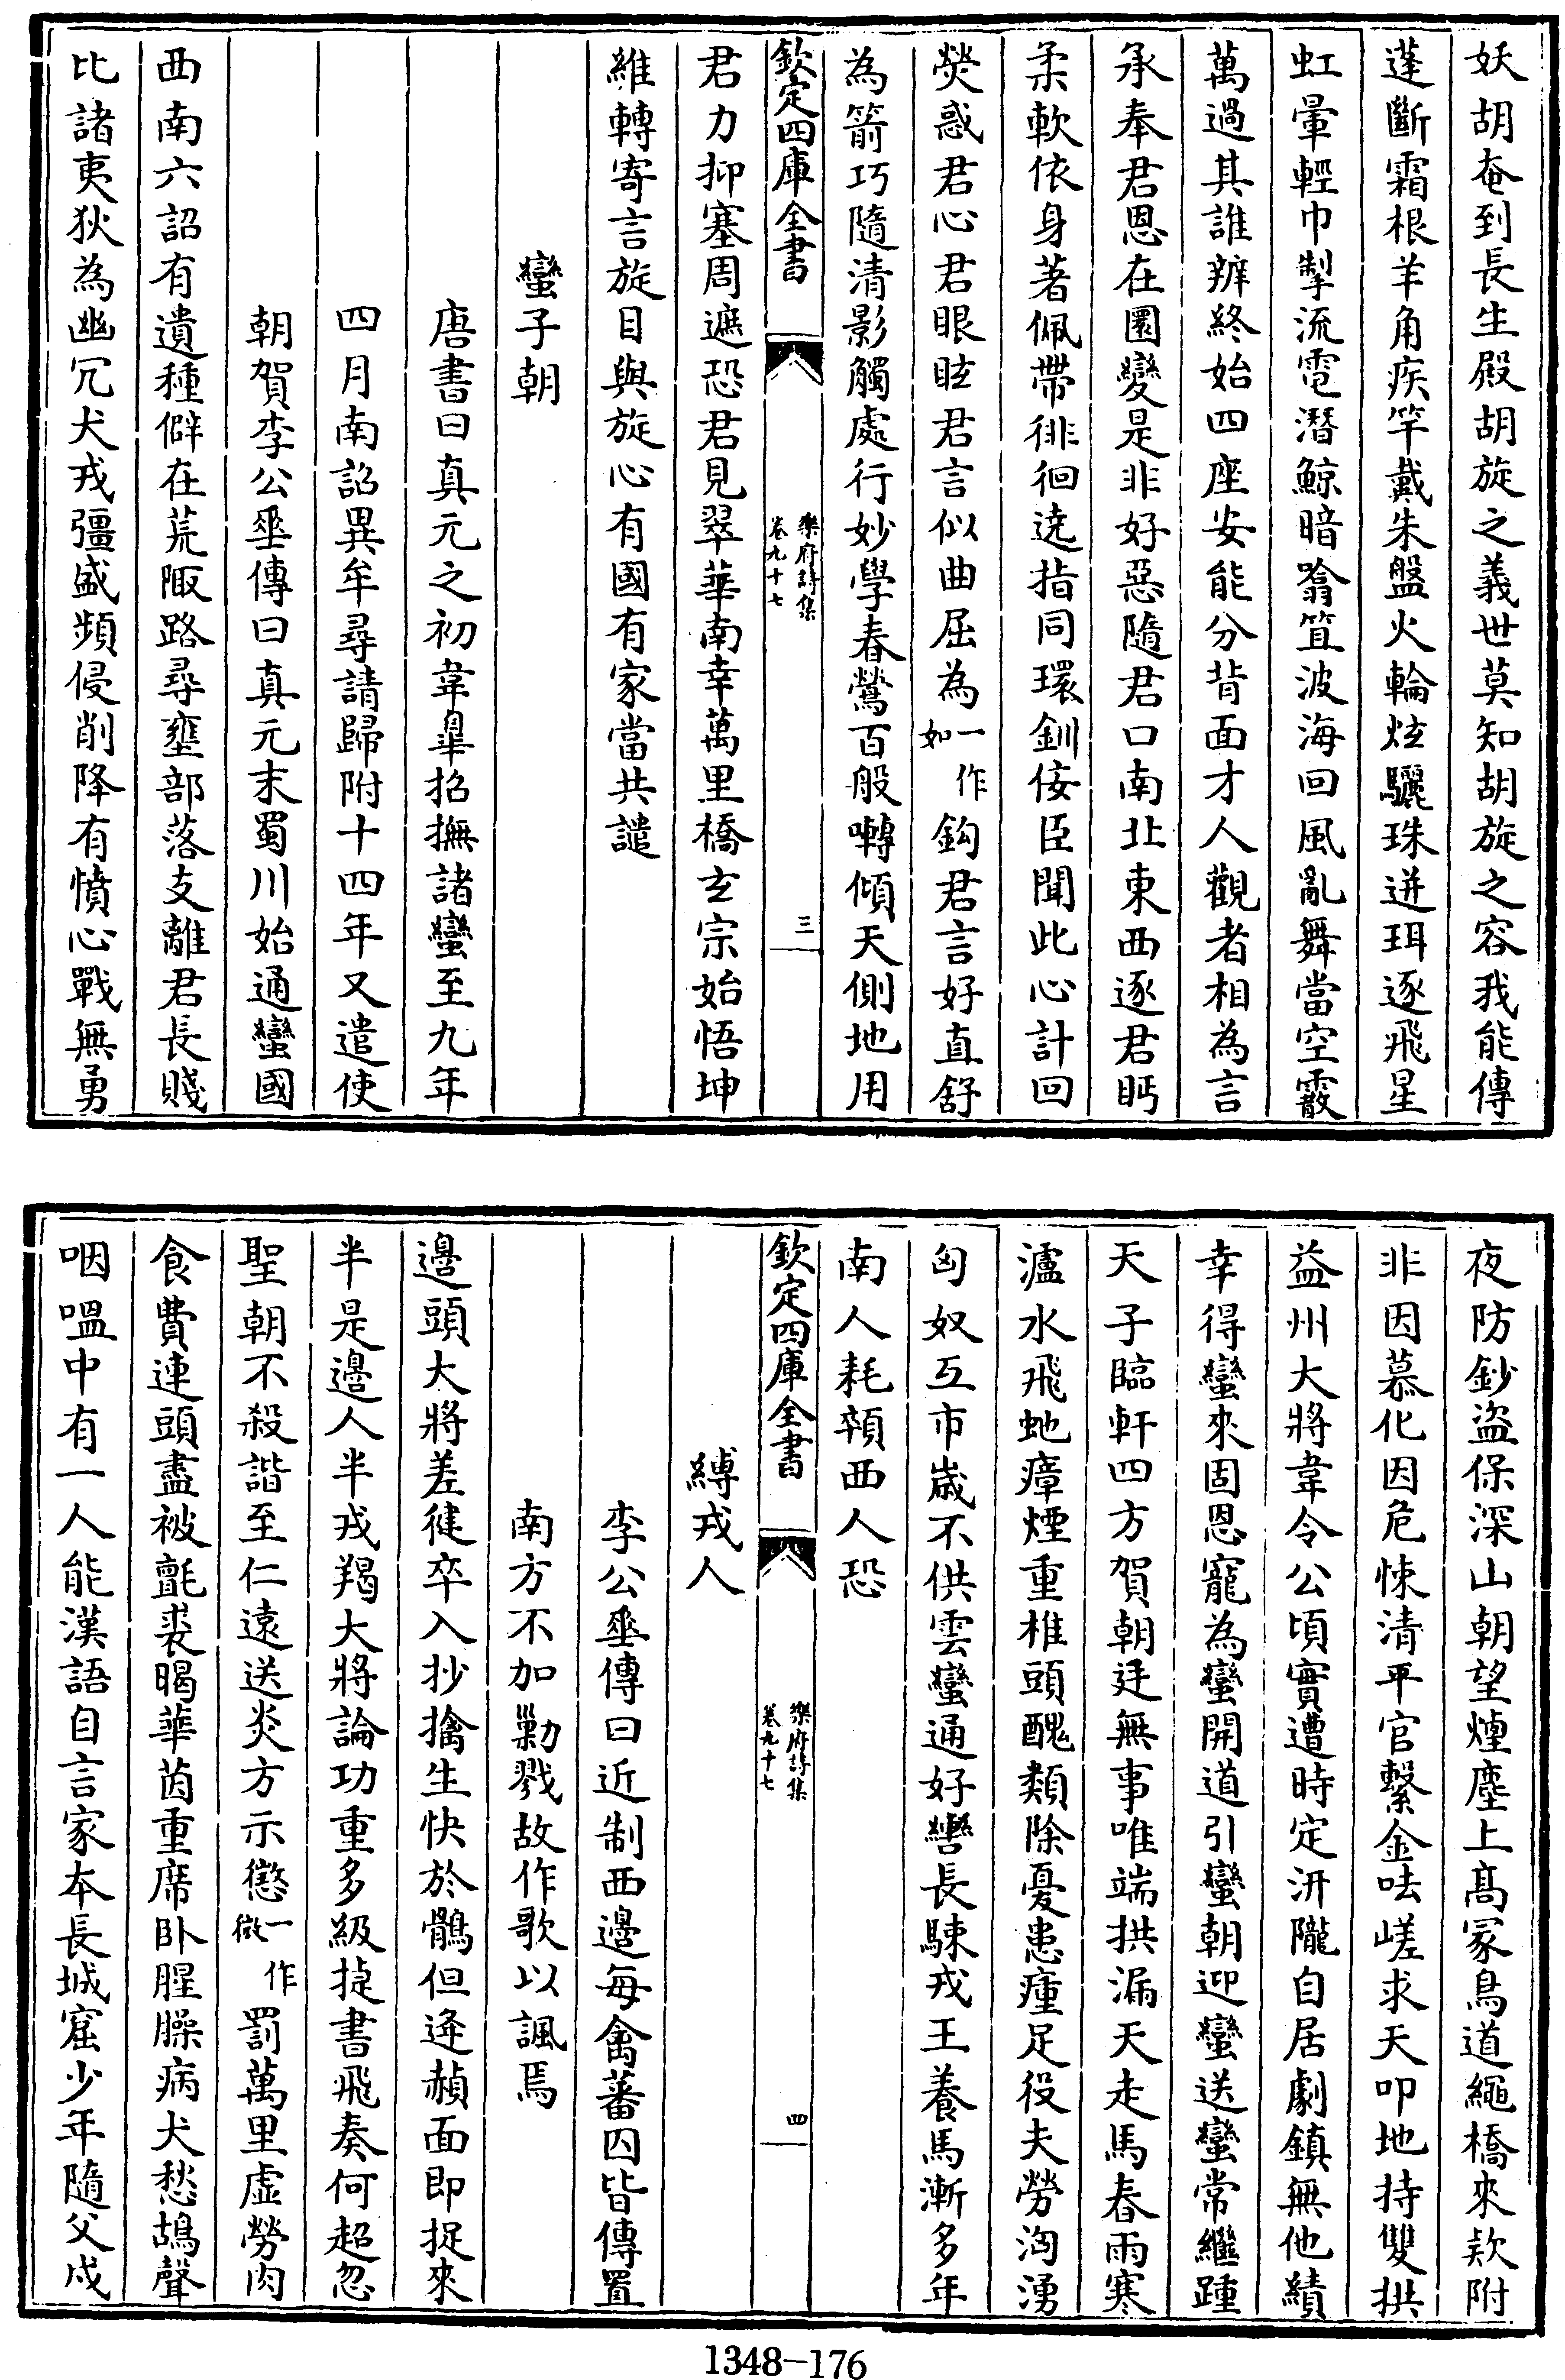 妖胡奄到長生殿胡旋之義世莫知胡旋之容我能傳
蓬斷霜根羊角疾竿戴朱盤火輪炫驪珠迸珥逐飛星
虹暈輕巾掣流電潛鯨暗噏笡波海回風亂舞當空霰
萬過其誰辨終始四座安能分背面才人觀者相為言
承奉君恩在圜變是非好惡隨君口南北東西逐君眄
柔軟依身著佩帶徘徊遶指同環釧佞臣聞此心計回
熒惑君心君眼眩君言似曲屈為一作如鈎君言好直舒
為箭巧隨清影觸處行妙學春鶯百般囀傾天側地用
欽定四庫全書
樂府詩集
卷九十七
三
君力抑塞周遮恐君見翠華南幸萬里橋玄宗始悟坤
維轉寄言旋目與旋心有國有家當共譴
蠻子朝
唐書曰真元之初韋臯招撫諸蠻至九年
四月南詔異牟尋請歸附十四年又遣使
朝賀李公垂傳曰真元末蜀川始通蠻國
西南六詔有遺種僻在荒陬路尋壅部落支離君長賤
比諸夷狄為幽冗犬戎彊盛頻侵削降有憤心戰無勇
夜防鈔盜保深山朝望煙塵上髙冢鳥道繩橋來欵附
非因慕化因危悚清平官繫金呿嵯求天叩地持雙拱
益州大將韋令公頃實遭時定汧隴自居劇鎮無他績
幸得蠻來固恩寵為蠻開道引蠻朝迎蠻送蠻常繼踵
天子臨軒四方賀朝廷無事唯端拱漏天走馬春雨寒
瀘水飛虵瘴煙重椎頭醜類除憂患瘇足役夫勞洶湧
匈奴互市嵗不供雲蠻通好轡長駷戎王養馬漸多年
南人耗顇西人恐
欽定四庫全書
樂府詩集
卷九十七
四
縛戎人
李公垂傳曰近制西邊每禽蕃囚皆傳置
南方不加勦戮故作歌以諷焉
邊頭大將差健卒入抄擒生快於鶻但逄赬面即捉來
半是邊人半戎羯大將論功重多級㨗書飛奏何超忽
聖朝不殺諧至仁遠送炎方示懲一作微罰萬里虛勞肉
食費連頭盡被氊裘暍華茵重席卧腥臊病犬愁鴣聲
咽嗢中有一人能漢語自言家本長城窟少年隨父戍
1348-176